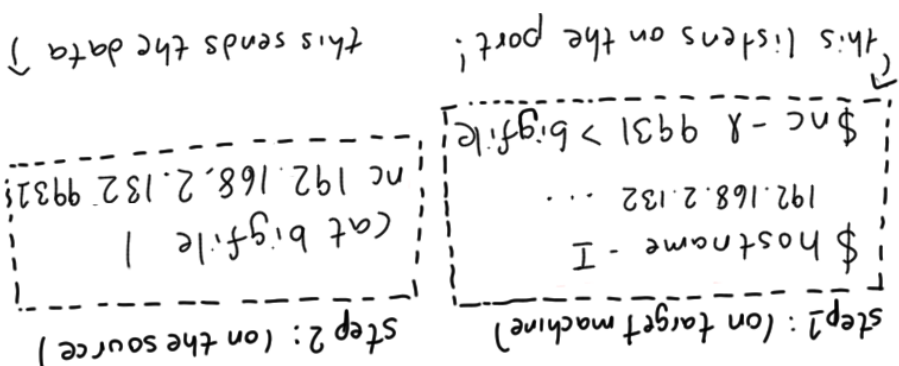 step1: (on target machine)
$ hostname -I
192.168.2.132 ...
$ nc -l 9931 > bigfile
this listens on the port!
step 2: (on the source)
cat bigfile |
nc 192.168.2.132 9931
this sends the data